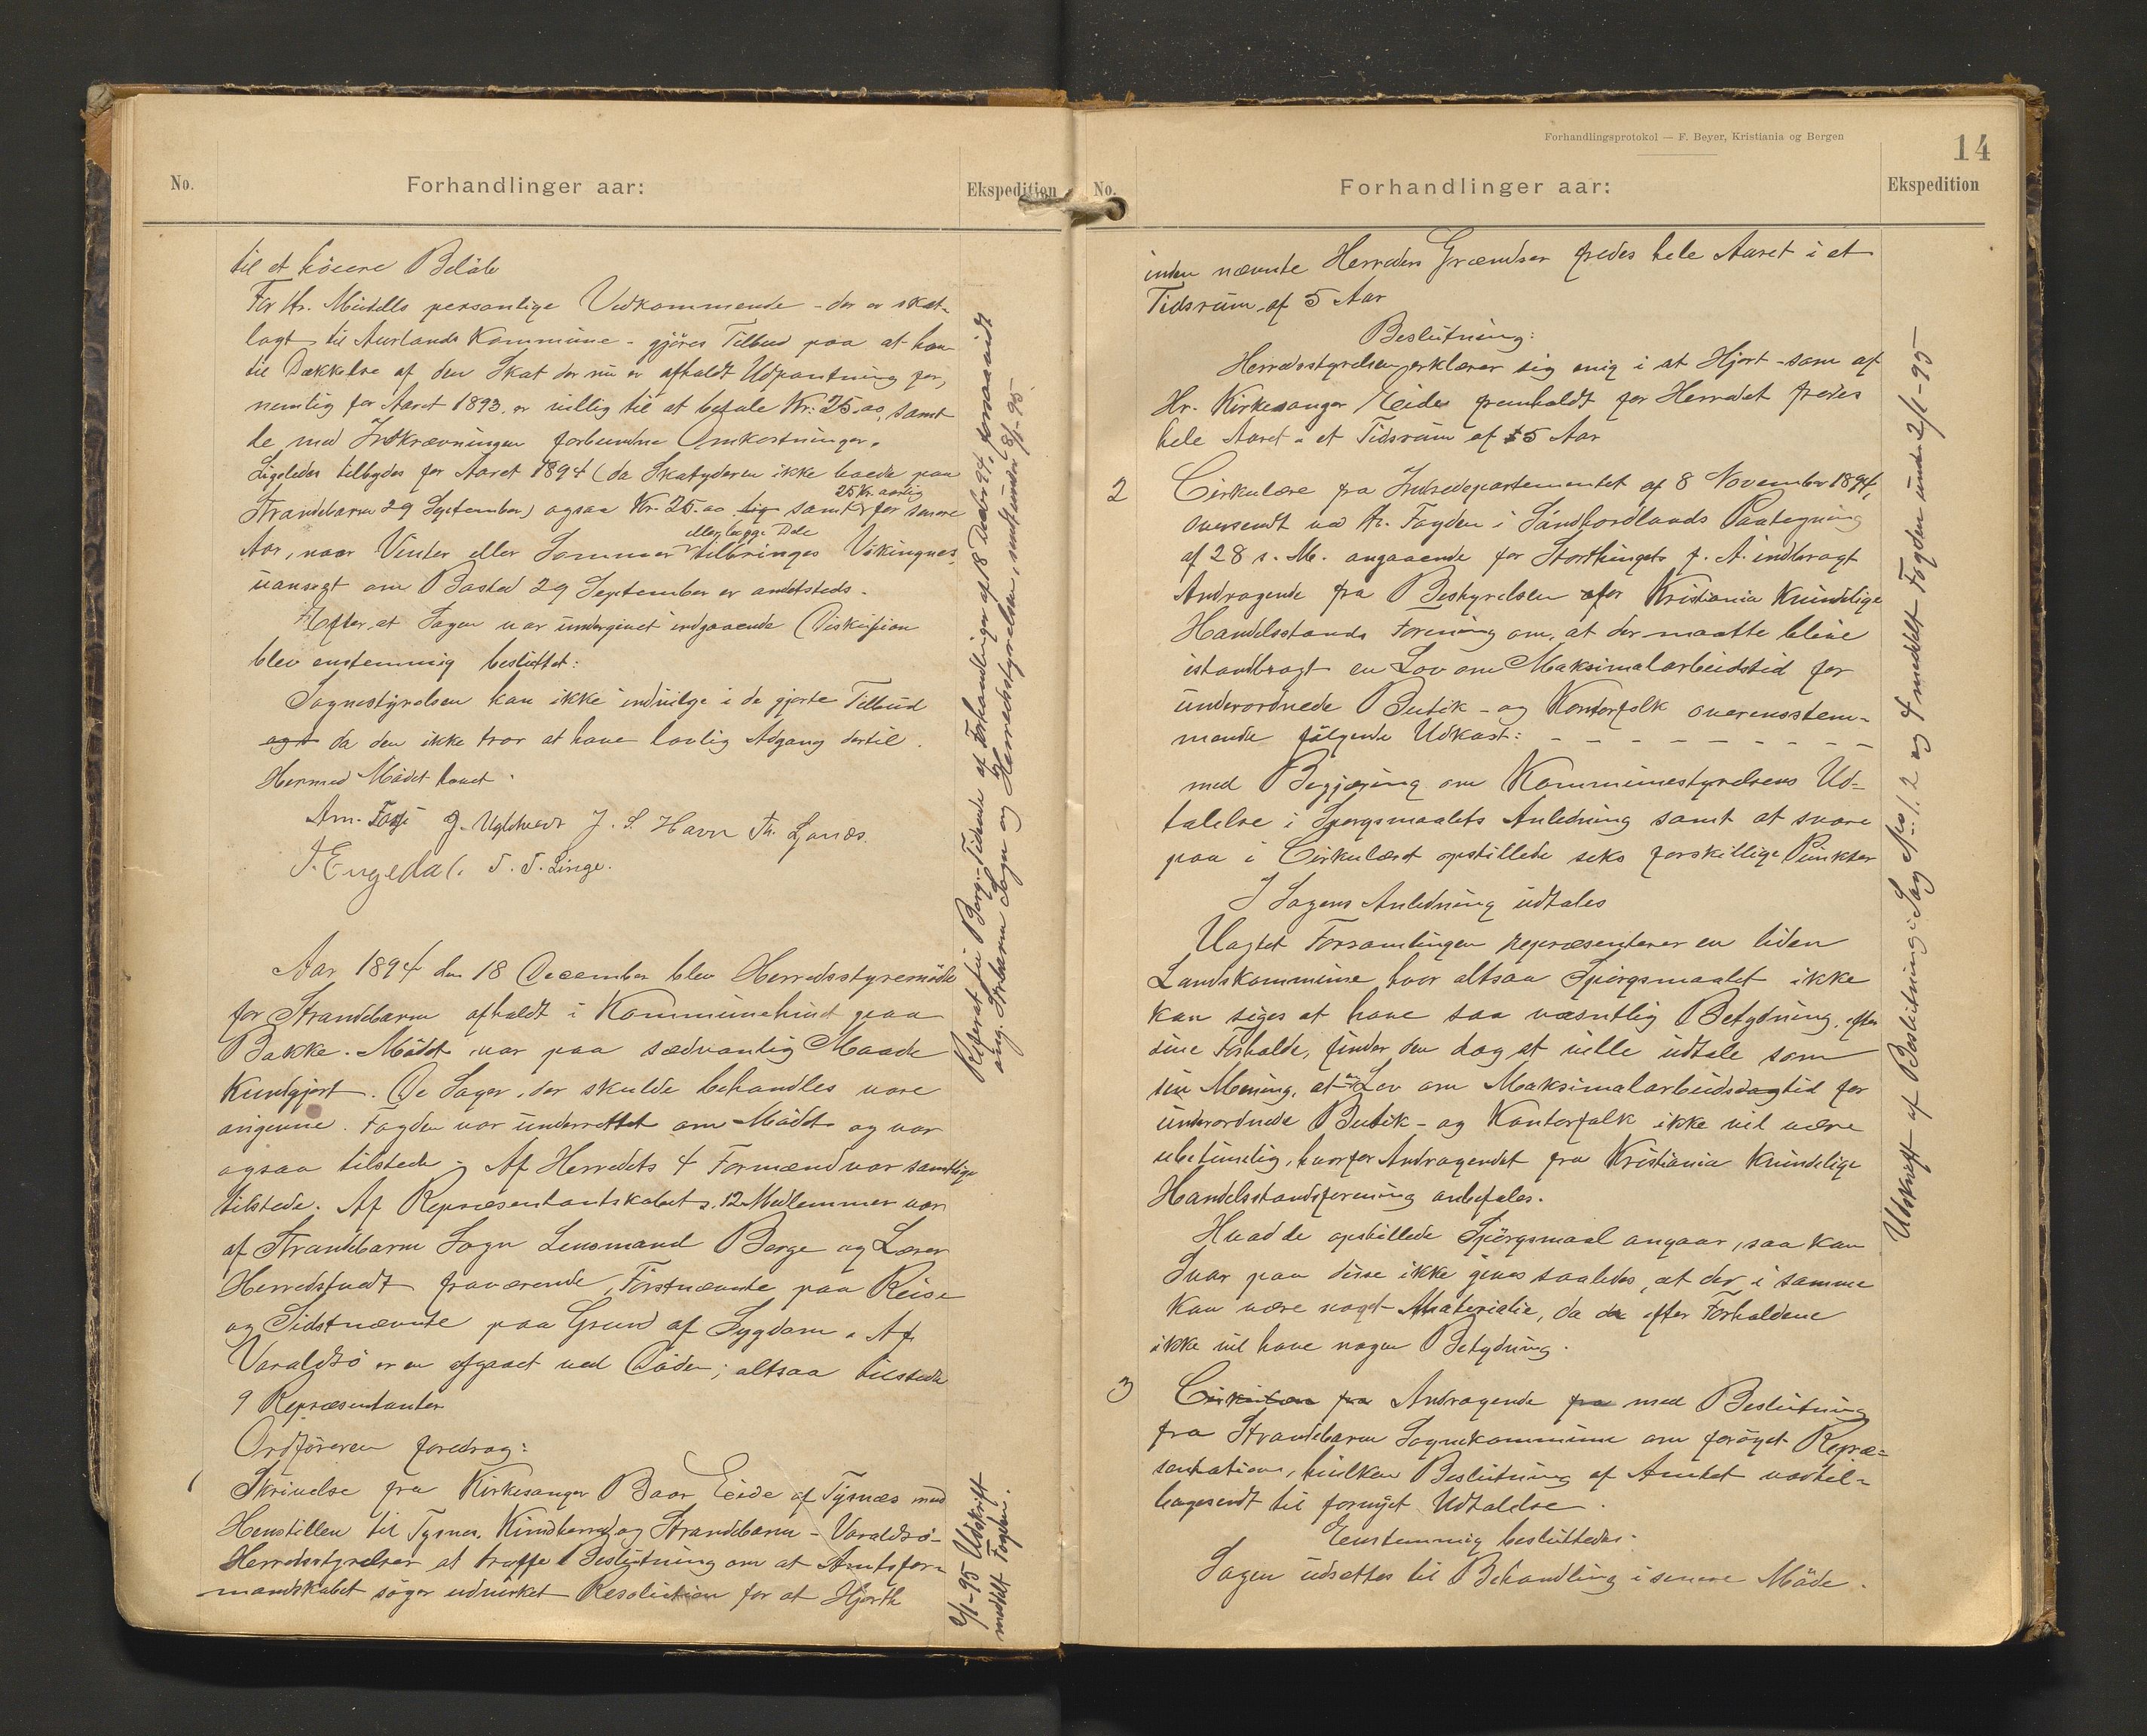 No.
Forhandlinger aar:
Ekspedition
til et höiere Belöb
For Hr. Meidells personlige Vedkommende - der er skat-
lagt til Aurlands Kommune - gjöres Tilbud paa at han
til Dækkelse af den Skat der nu er afholdt Udpantning for,
nemlig for Aaret 1893. er villig til at betale Kr: 25.00, samt
de med Indkrævningen forbundne Omkostninger.
Ligeledes tilbydes for Aaret 1894 (da Skatyderen ikke boede paa
Strandebarm 29 September) ogsaa Kr. 25.00 samt 25 Kr. aarlig for senere
Aar, naar Vinter eller Sommer eller begge Dele tilbringes Vikingnes,
uanseet om Bosted 29 September er andetsteds.
Efter, at Sagen var undergivet indgaaende Diskusion
blev enstemmig besluttet:
Sognestyrelsen kan ikke indvilge i de gjorte Tilbud
da den ikke tror at have lovlig Adgang dertil.
Hermed Mödet hævet.
Am. Fosse J. Ugletveit J. S. Havn Th. Lanæs.
J. Engedal. T. T. Linge.
Aar 1894 den 18 December blev Herredsstyremöde
for Strandebarm afholdt i Kommunehuset paa
Bakke. Mödet var paa sædvanlig Maade
Kundgjort. De Sager, der skulde behandles vare
angivne. Fogden var underrettet om Mödet og var
ogsaa tilstede. Af Herredets 4 Formænd var samtlige
tilstede. Af Repræsentantskabets 12 Medlemmer var
af Strandebarm Sogn Lensmand Berge og Lærer
Herredstvedt fraværende, Förstnævnte paa Reise
og Sidstnævnte paa Grund af Sygdom. Af
Varaldsö er en afgaaet ved Döden; altsaa tilstede
9 Repræsentanter
Ordföreren foredrog:
1
Skrivelse fra Kirkesanger Baar Eide af Tysnæs med
Henstillen til Tysnes, Kvindherred og Strandebarm - Varaldsö-
Herredsstyrelser at træffe Beslutning om at Amtsfor-
mandskabet söger udvirket Resolution for at Hjorte
Referat fri Berg. Tidende af Forhandlinger af 18 Decbr 94, forsaavidt
ang. Strbarm Sogn og Herredsstyrelse, sendt under 2/1-95.
2/1-95 Udskrift
meddelt Fogden.
Forhandlingsprotokol — F. Beyer, Kristiania og Bergen
14
No.
Forhandlinger aar:
Ekspedition
inden nævnte Herreders Grændser fredes hele Aaret i et
Tidsrum af 5 Aar
Beslutning:
Herredsstyrelsen erklærer sig enig i at Hjort - som af
Hr. Kirkesanger Eide fremholdt for Herredet fredes
hele Aaret i et Tidsrum af 5 Aar
2
Cirkulære fra Indredepartementet af 8 November 1894,
oversendt ved Hr. Fogden i Söndhordlands Paategning
af 28 s. M. angaaende for Storthinget f. A. indbragt
Andragende fra Bestyrelsen for Kristiania Kvindelige
Handelsstands Forening om, at der maatte blive
istandbragt en Lov om Maksimalarbeidstid for
underordnede Butik- og Kontorfolk overensstem-
mende fölgende Udkast: - - - - - - - - -
med Begjæring om Kommunestyrelsens Ud-
talelse i Spörgsmaalets Anledning samt at svare
paa i Cirkulæret opstillede seks forskillige Punkter
I Sagens Anledning udtales
Uagtet Forsamlingen repræsenterer en liden
Landskommune hvor altsaa Spörgsmaalet ikke
kan siges at have saa væsentlig Betydning, efter
sine Forholde, finder den dog at ville udtale som
sin Mening, at en Lov om Maksimalarbeidsdagtid for
underordnede Butik- og Kontorfolk ikke vil være
ubetimelig, hvorfor Andragendet fra Kristiania Kvindelige
Handelsstandsforening anbefales.
Hvad de opstillede Spörgsmaal angaar, saa kan
Svar paa disse ikke gives saaledes, at der i samme
kan være noget Materiale, da de efter Forholdene
ikke vil have nogen Betydning.
3
Cirkulære fra Andragende fra med Beslutning
fra Strandebarm Sognekommune om forøget Repræ-
sentation, hvilken Beslutning af Amtet var til-
bagesendt til fornyet Udtalelse.
Eenstemmig besluttedes:
Sagen udsættes til Behandling i senere Möde.
Udskrift af Beslutning i Sag No: 1, 2 og 4 meddelt Fogden under 2/1-95